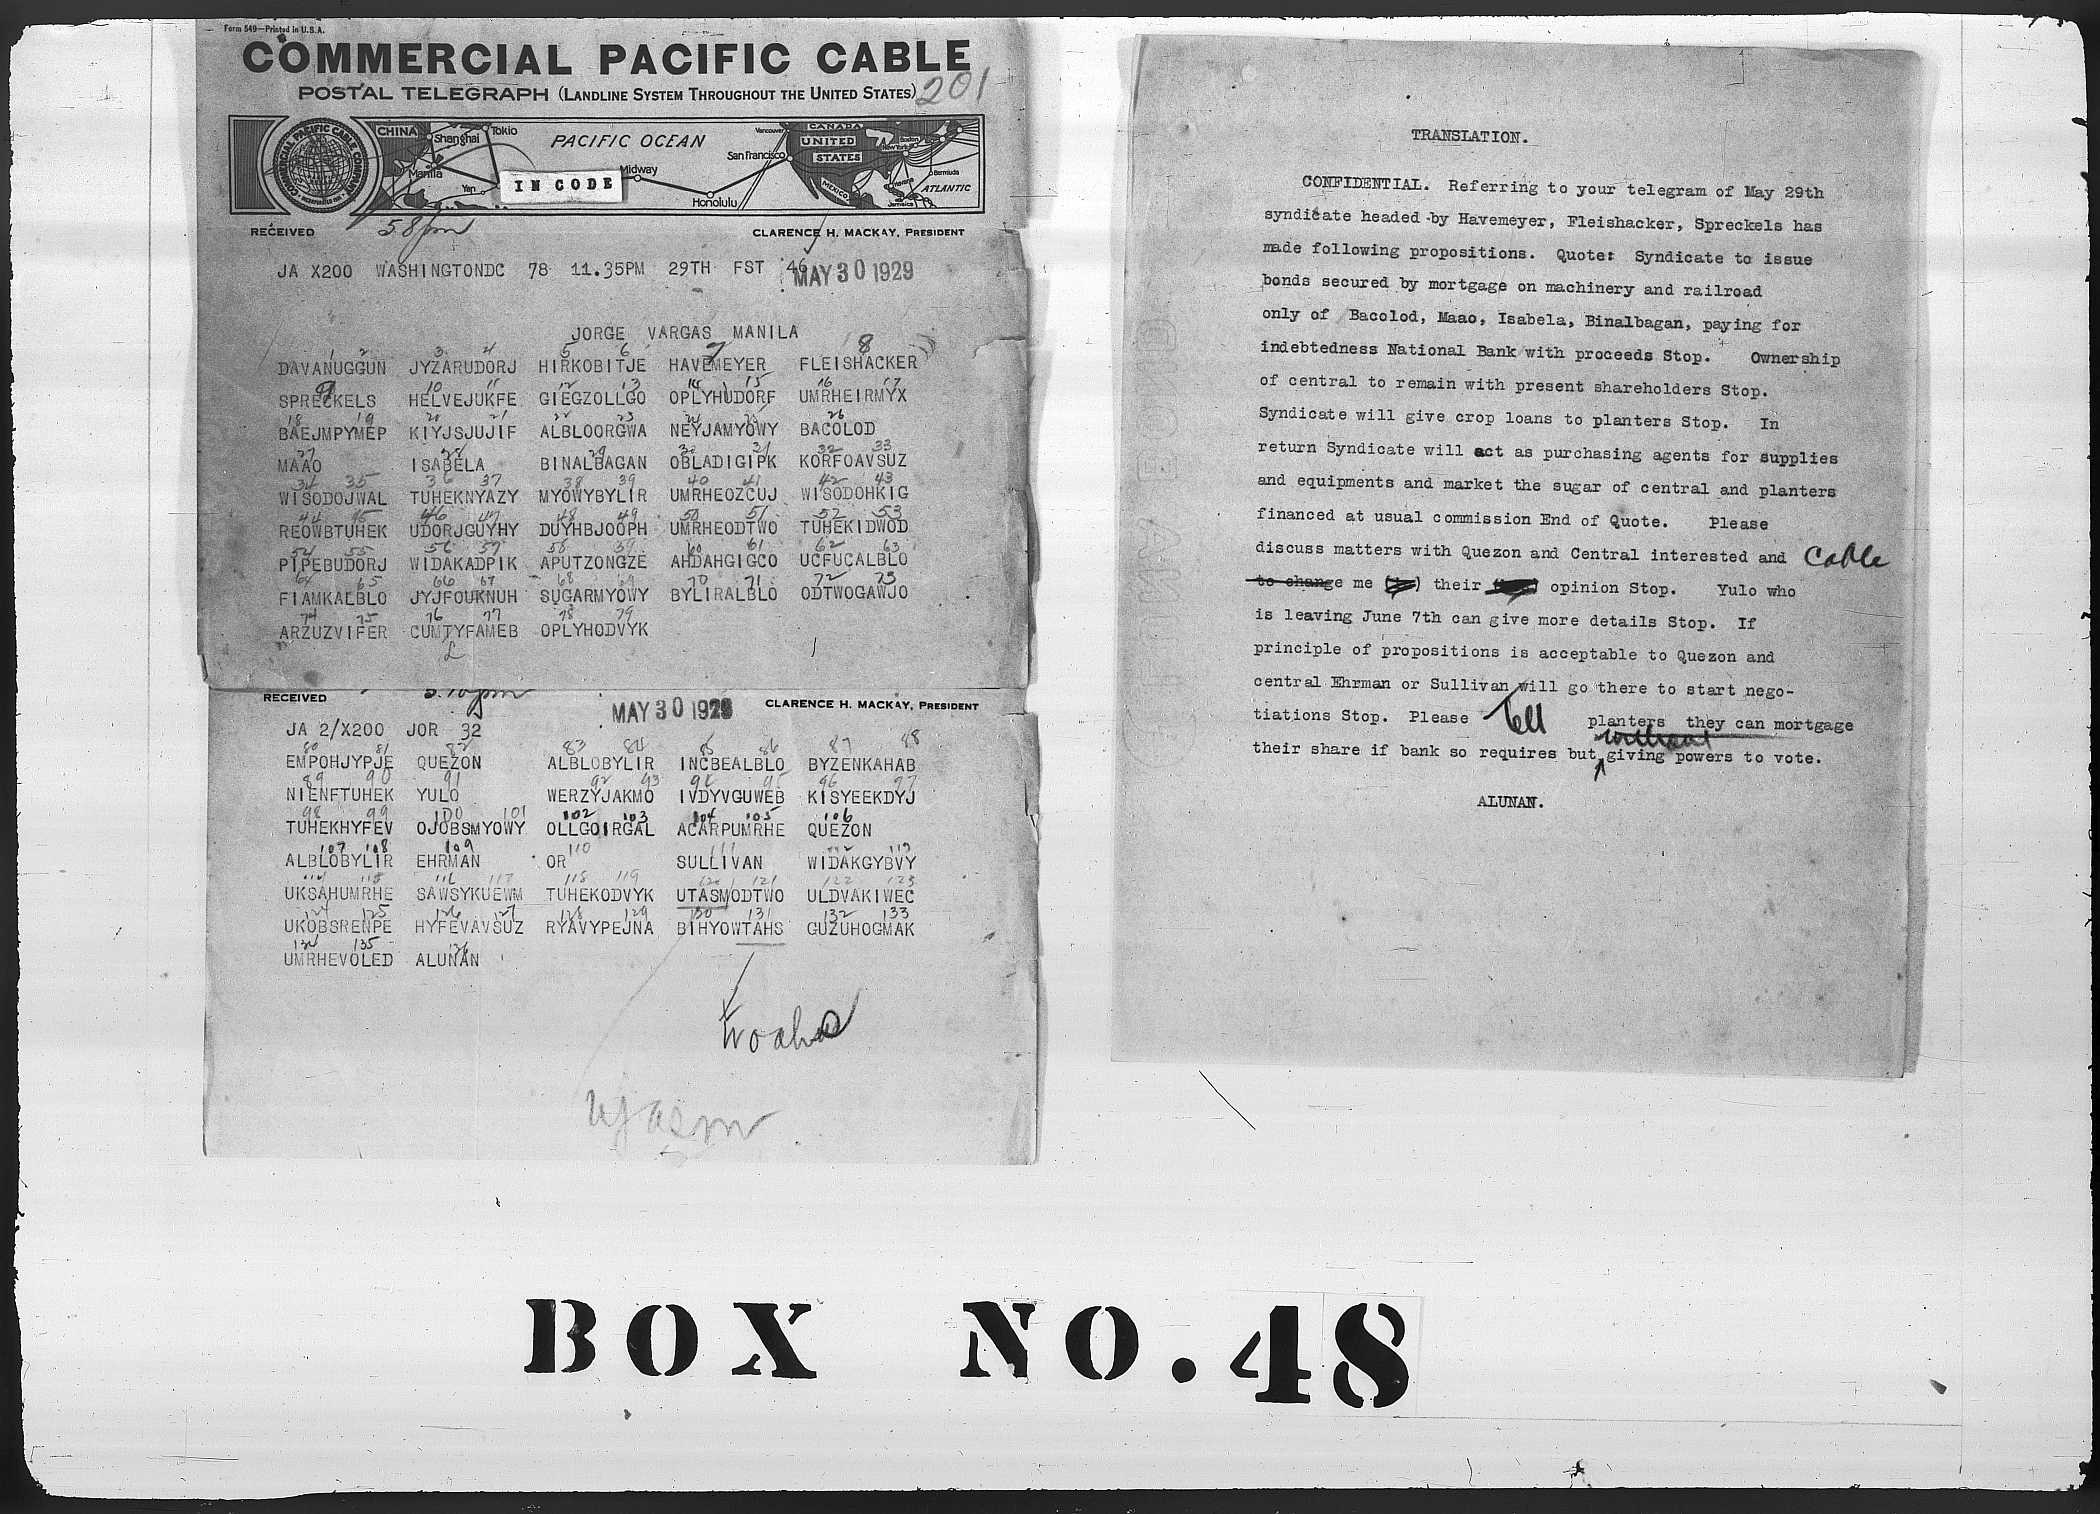 Form 549—Printed in U.S.A.
COMMERCIAL PACIFIC CABLE
POSTAL TELEGRAPH (LANDLINE SYSTEM THROUGHOUT THE UNITED STATES)
201
COMMERCIAL PACIFIC CABLE COMPANY
CHINA Shanghai Tokio PACIFIC OCEAN Vancouver CANADA
UNITED STATES San Francisco New York Boston
Manila Yap IN CODE Midway Honolulu MEXICO Havana Bermuda ATLANTIC Jamaica
RECEIVED 58pm CLARENCE H. MACKAY, PRESIDENT
JA X200 WASHINGTONDC 78 11.35PM 29TH FST 46
MAY 30 1929
JORGE VARGAS MANILA
1 2 3 4 5 6 7 8
DAVANUGGUN JYZARUDORJ HIRKOBITJE HAVEMEYER FLEISHACKER
9 10 11 12 13 14 15 16 17
SPRECKELS HELVEJUKFE GIEGZOLLGO OPLYHUDORF UMRHEIRMYX
18 19 20 21 22 23 24 25 26
BAEJMPYMEP KIYJSJUJIF ALBLOORGWA NEYJAMYOWY BACOLOD
27 28 29 30 31 32 33
MAAO ISABELA BINALBAGAN OBLADIGIPK KORFOAVSUZ
34 35 36 37 38 39 40 41 42 43
WISODOJWAL TUHEKNYAZY MYOWYBYLIR UMRHEOZCUJ WISODOHKIG
44 45 46 47 48 49 50 51 52 53
REOWBTUHEK UDORJGUYHY DUYHBJOOPH UMRHEODTWO TUHEKIDWOD
54 55 56 57 58 59 60 61 62 63
PIPEBUDORJ WIDAKADPIK APUTZONGZE AHDAHGIGCO UCFUCALBLO
64 65 66 67 68 69 70 71 72 73
FIAMKALBLO JYJFOUKNUH SUGARMYOWY BYLIRALBLO ODTWOGAWJO
74 75 76 77 78 79
ARZUZVIFER CUMTYFAMEB OPLYHODVYK
RECEIVED 5.10pm CLARENCE H. MACKAY, PRESIDENT
MAY 30 1929
JA 2/X200 JOR 32
80 81 82 83 84 85 86 87 88
EMPOHJYPJE QUEZON ALBLOBYLIR INCBEALBLO BYZENKAHAB
89 90 91 92 93 94 95 96 97
NIENFTUHEK YULO WERZYJAKMO IVDYVGUWEB KISYEEKDYJ
98 99 100 101 102 103 104 105 106
TUHEKHYFEV OJOBSMYOWY OLLGOIRGAL ACARPUMRHE QUEZON
107 108 109 110 111 112 113
ALBLOBYLIR EHRMAN OR SULLIVAN WIDAKGYBVY
114 115 116 117 118 119 120 121 122 123
UKSAHUMRHE SAWSYKUEWM TUHEKODVYK UTASMODTWO ULDVAKIWEC
124 125 126 127 128 129 130 131 132 133
UKOBSRENPE HYFEVAVSUZ RYAVYPEJNA BIHYOWTAHS GUZUHOGMAK
134 135 136
UMRHEVOLED ALUNAN
TRANSLATION.
CONFIDENTIAL. Referring to your telegram of May 29th
syndicate headed by Havemeyer, Fleishacker, Spreckels has
made following propositions. Quote: Syndicate to issue
bonds secured by mortgage on machinery and railroad
only of Bacolod, Maao, Isabela, Binalbagan, paying for
indebtedness National Bank with proceeds Stop. Ownership
of central to remain with present shareholders Stop.
Syndicate will give crop loans to planters Stop. In
return Syndicate will act as purchasing agents for supplies
and equipments and market the sugar of central and planters
financed at usual commission End of Quote. Please
discuss matters with Quezon and Central interested and Cable
to change me their opinion Stop. Yulo who
is leaving June 7th can give more details Stop. If
principle of propositions is acceptable to Quezon and
central Ehrman or Sullivan will go there to start nego-
tiations Stop. Please Tell planters they can mortgage
their share if bank so requires but without giving powers to vote.
ALUNAN.
BOX NO. 48